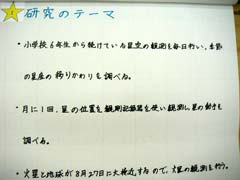 1 研究のテーマ
・小学校6年生から続けている星空の観測を毎日行い、季節
の星座の移りかわりを調べる。
・月に1回、星の位置を観測記録器を使い観測し、星の動きを
調べる。
・火星と地球が8月27日に大接近するので、火星の観測を行う。